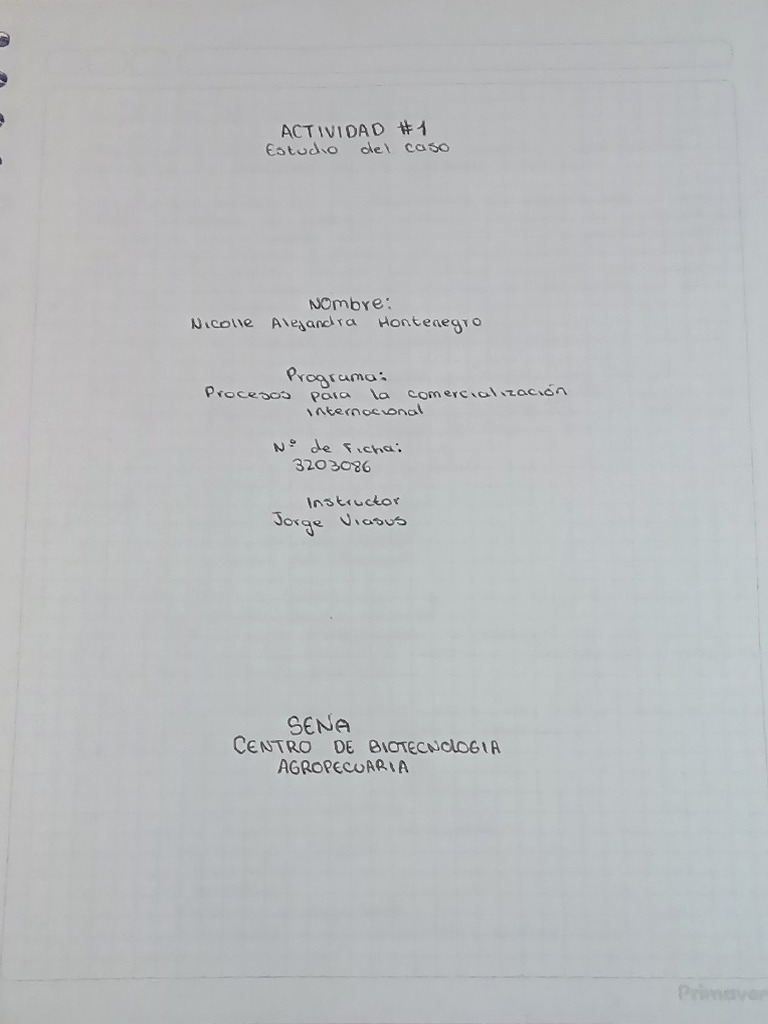 ACTIVIDAD #1
Estudio del caso
Nombre:
Nicolle Alejandra Montenegro
Programa:
Procesos para la comercialización
internacional
N° de Ficha:
3203086
Instructor
Jorge Viasus
SENA
CENTRO DE BIOTECNOLOGIA
AGROPECUARIA